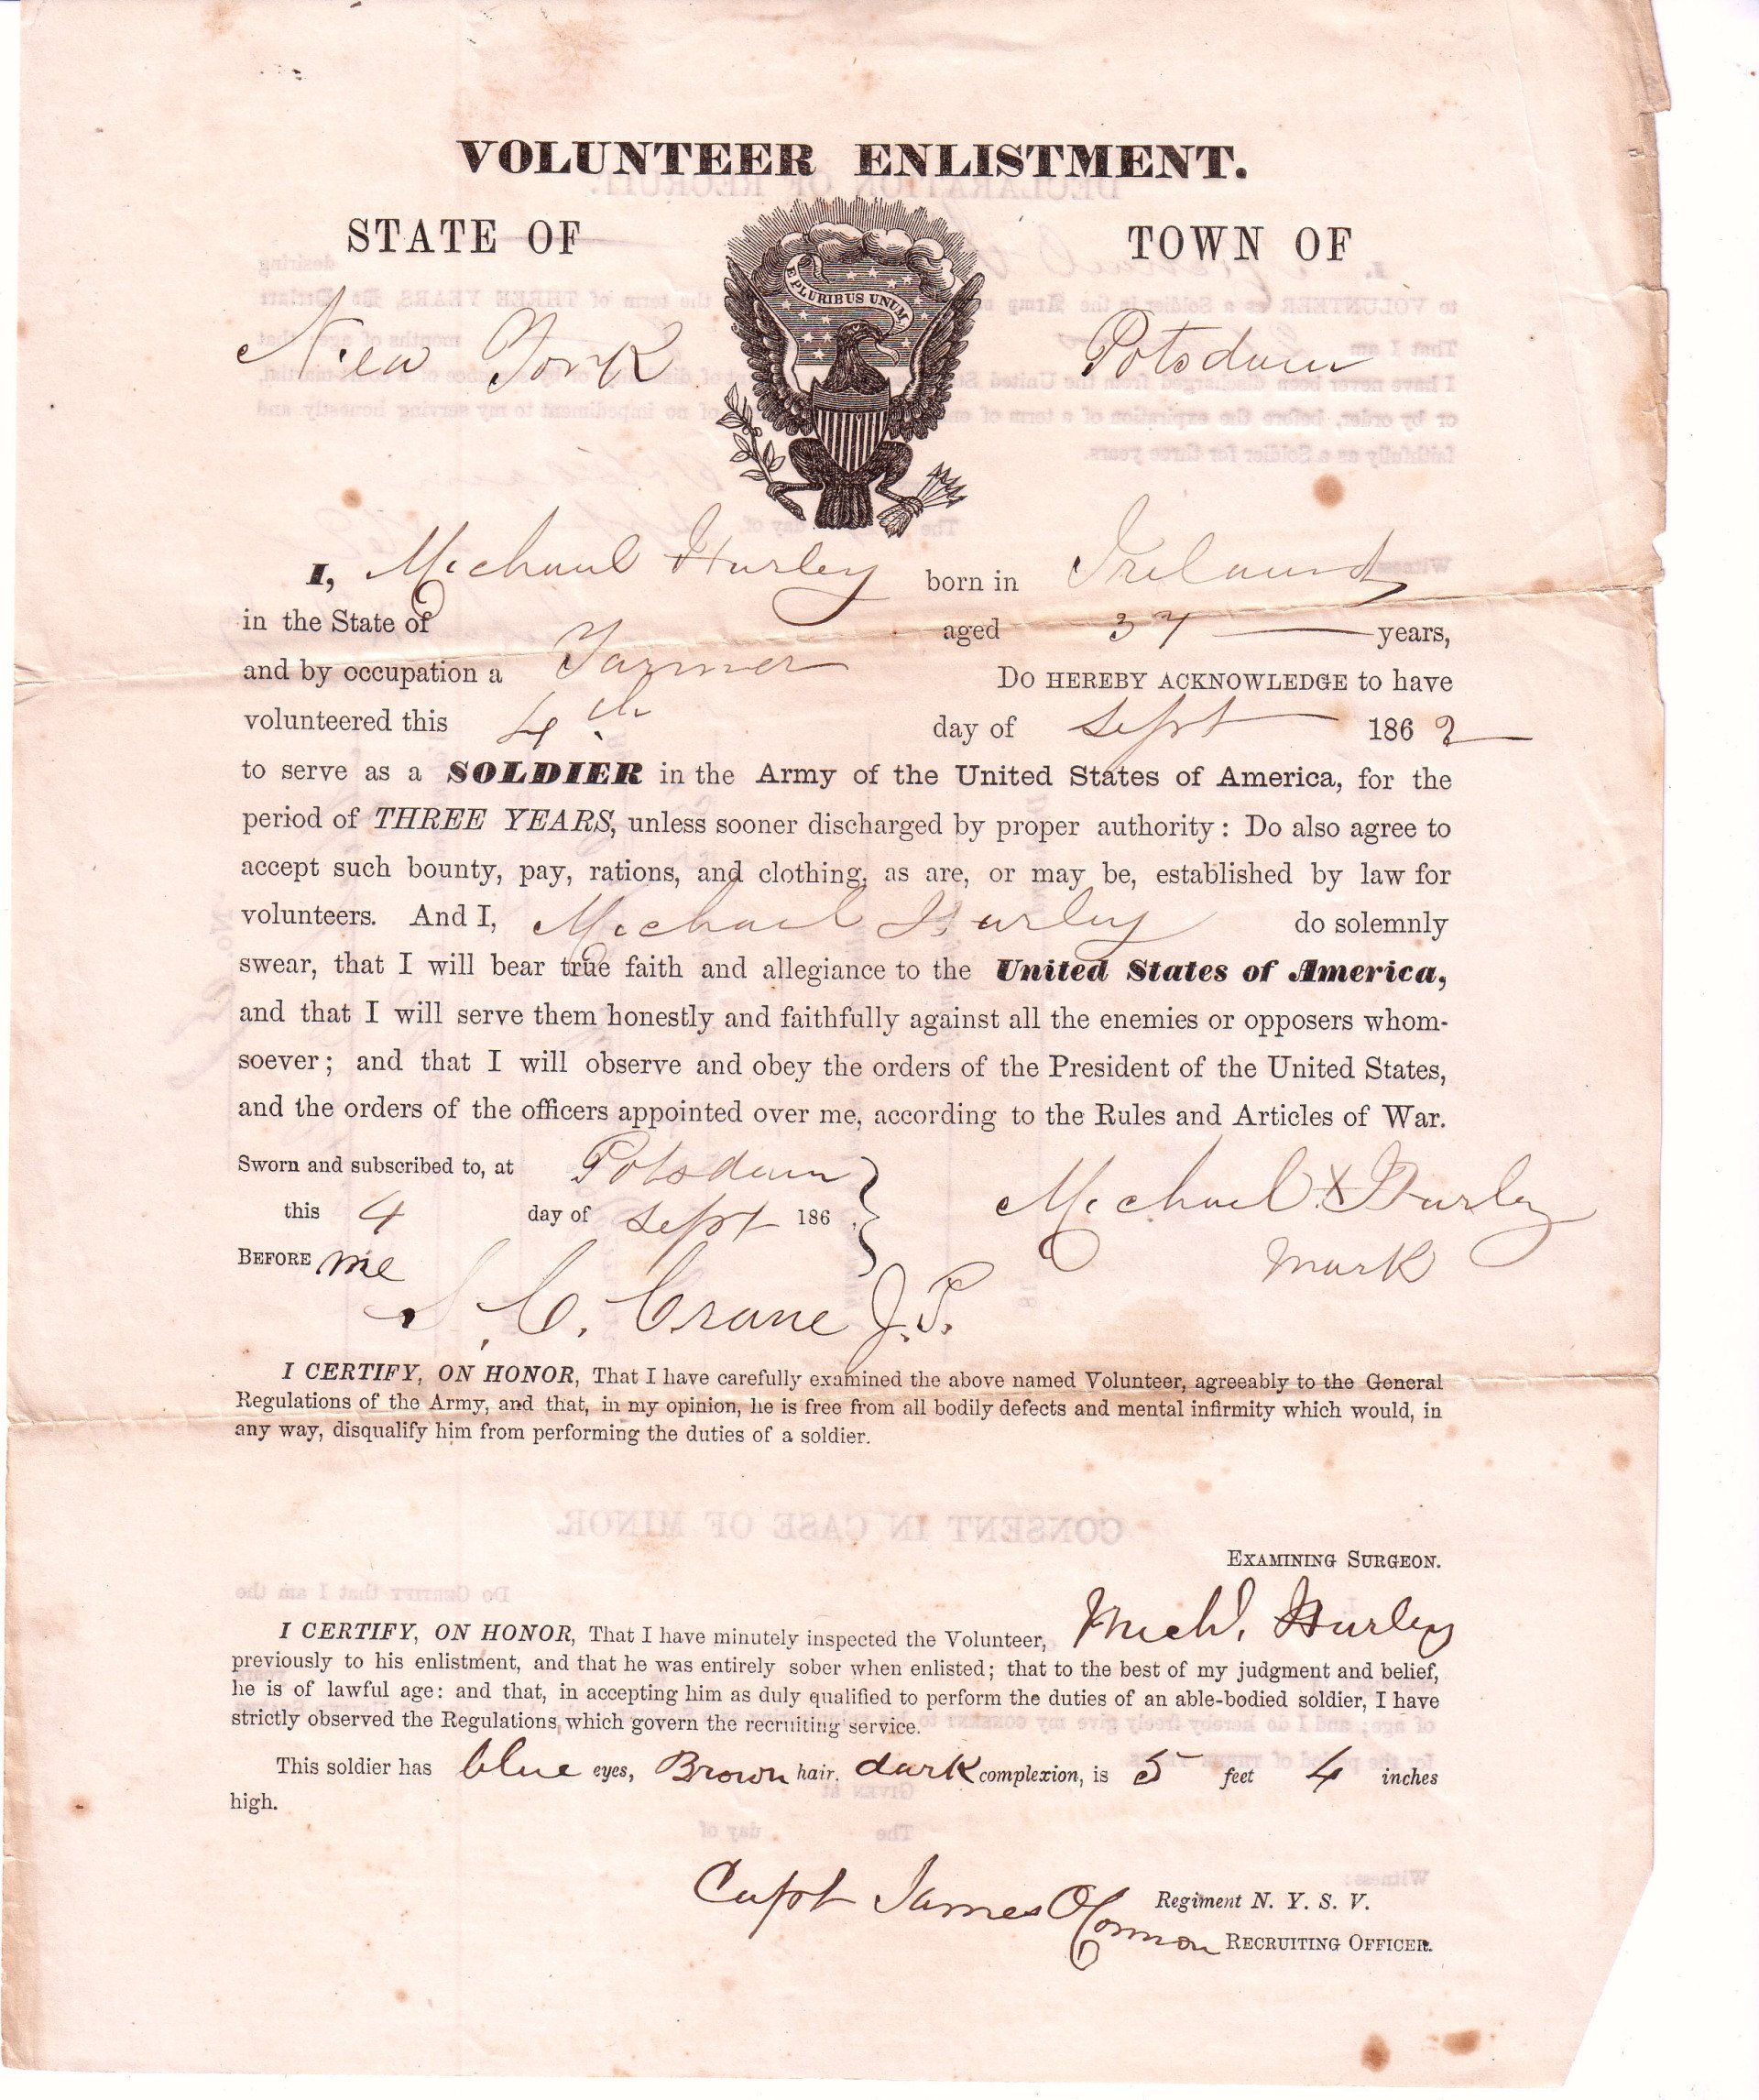 VOLUNTEER ENLISTMENT.
STATE OF TOWN OF
E PLURIBUS UNUM
New York Potsdam
I, Michael Hurley born in Ireland
in the State of aged 37 years,
and by occupation a Farmer DO HEREBY ACKNOWLEDGE to have
volunteered this 4th day of Sept 1862
to serve as a SOLDIER in the Army of the United States of America, for the
period of THREE YEARS, unless sooner discharged by proper authority: Do also agree to
accept such bounty, pay, rations, and clothing, as are, or may be, established by law for
volunteers. And I, Michael Hurley do solemnly
swear, that I will bear true faith and allegiance to the United States of America,
and that I will serve them honestly and faithfully against all the enemies or opposers whom-
soever; and that I will observe and obey the orders of the President of the United States,
and the orders of the officers appointed over me, according to the Rules and Articles of War.
Sworn and subscribed to, at Potsdam
this 4 day of Sept 186
Michael X Hurley
mark
BEFORE me
S. C. Crane J.P.
I CERTIFY, ON HONOR, That I have carefully examined the above named Volunteer, agreeably to the General
Regulations of the Army, and that, in my opinion, he is free from all bodily defects and mental infirmity which would, in
any way, disqualify him from performing the duties of a soldier.
EXAMINING SURGEON.
I CERTIFY, ON HONOR, That I have minutely inspected the Volunteer, Michl. Hurley
previously to his enlistment, and that he was entirely sober when enlisted; that to the best of my judgment and belief,
he is of lawful age: and that, in accepting him as duly qualified to perform the duties of an able-bodied soldier, I have
strictly observed the Regulations which govern the recruiting service.
This soldier has blue eyes, Brown hair. dark complexion, is 5 feet 4 inches
high.
Capt James OConnor Regiment N. Y. S. V.
RECRUITING OFFICER.